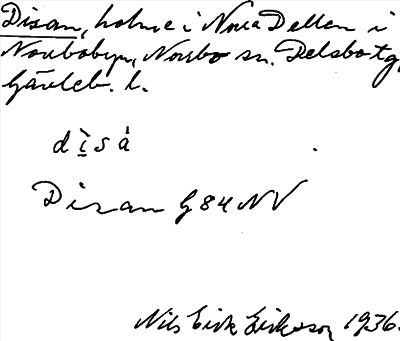 Disan, holme i Norra Dellen i
Norrbobyn, Norrbo sn. Delsbo tg,
Gävleb. l.
dìsá
Disan G 84 NV
Nils Erik Eriksson 1936.